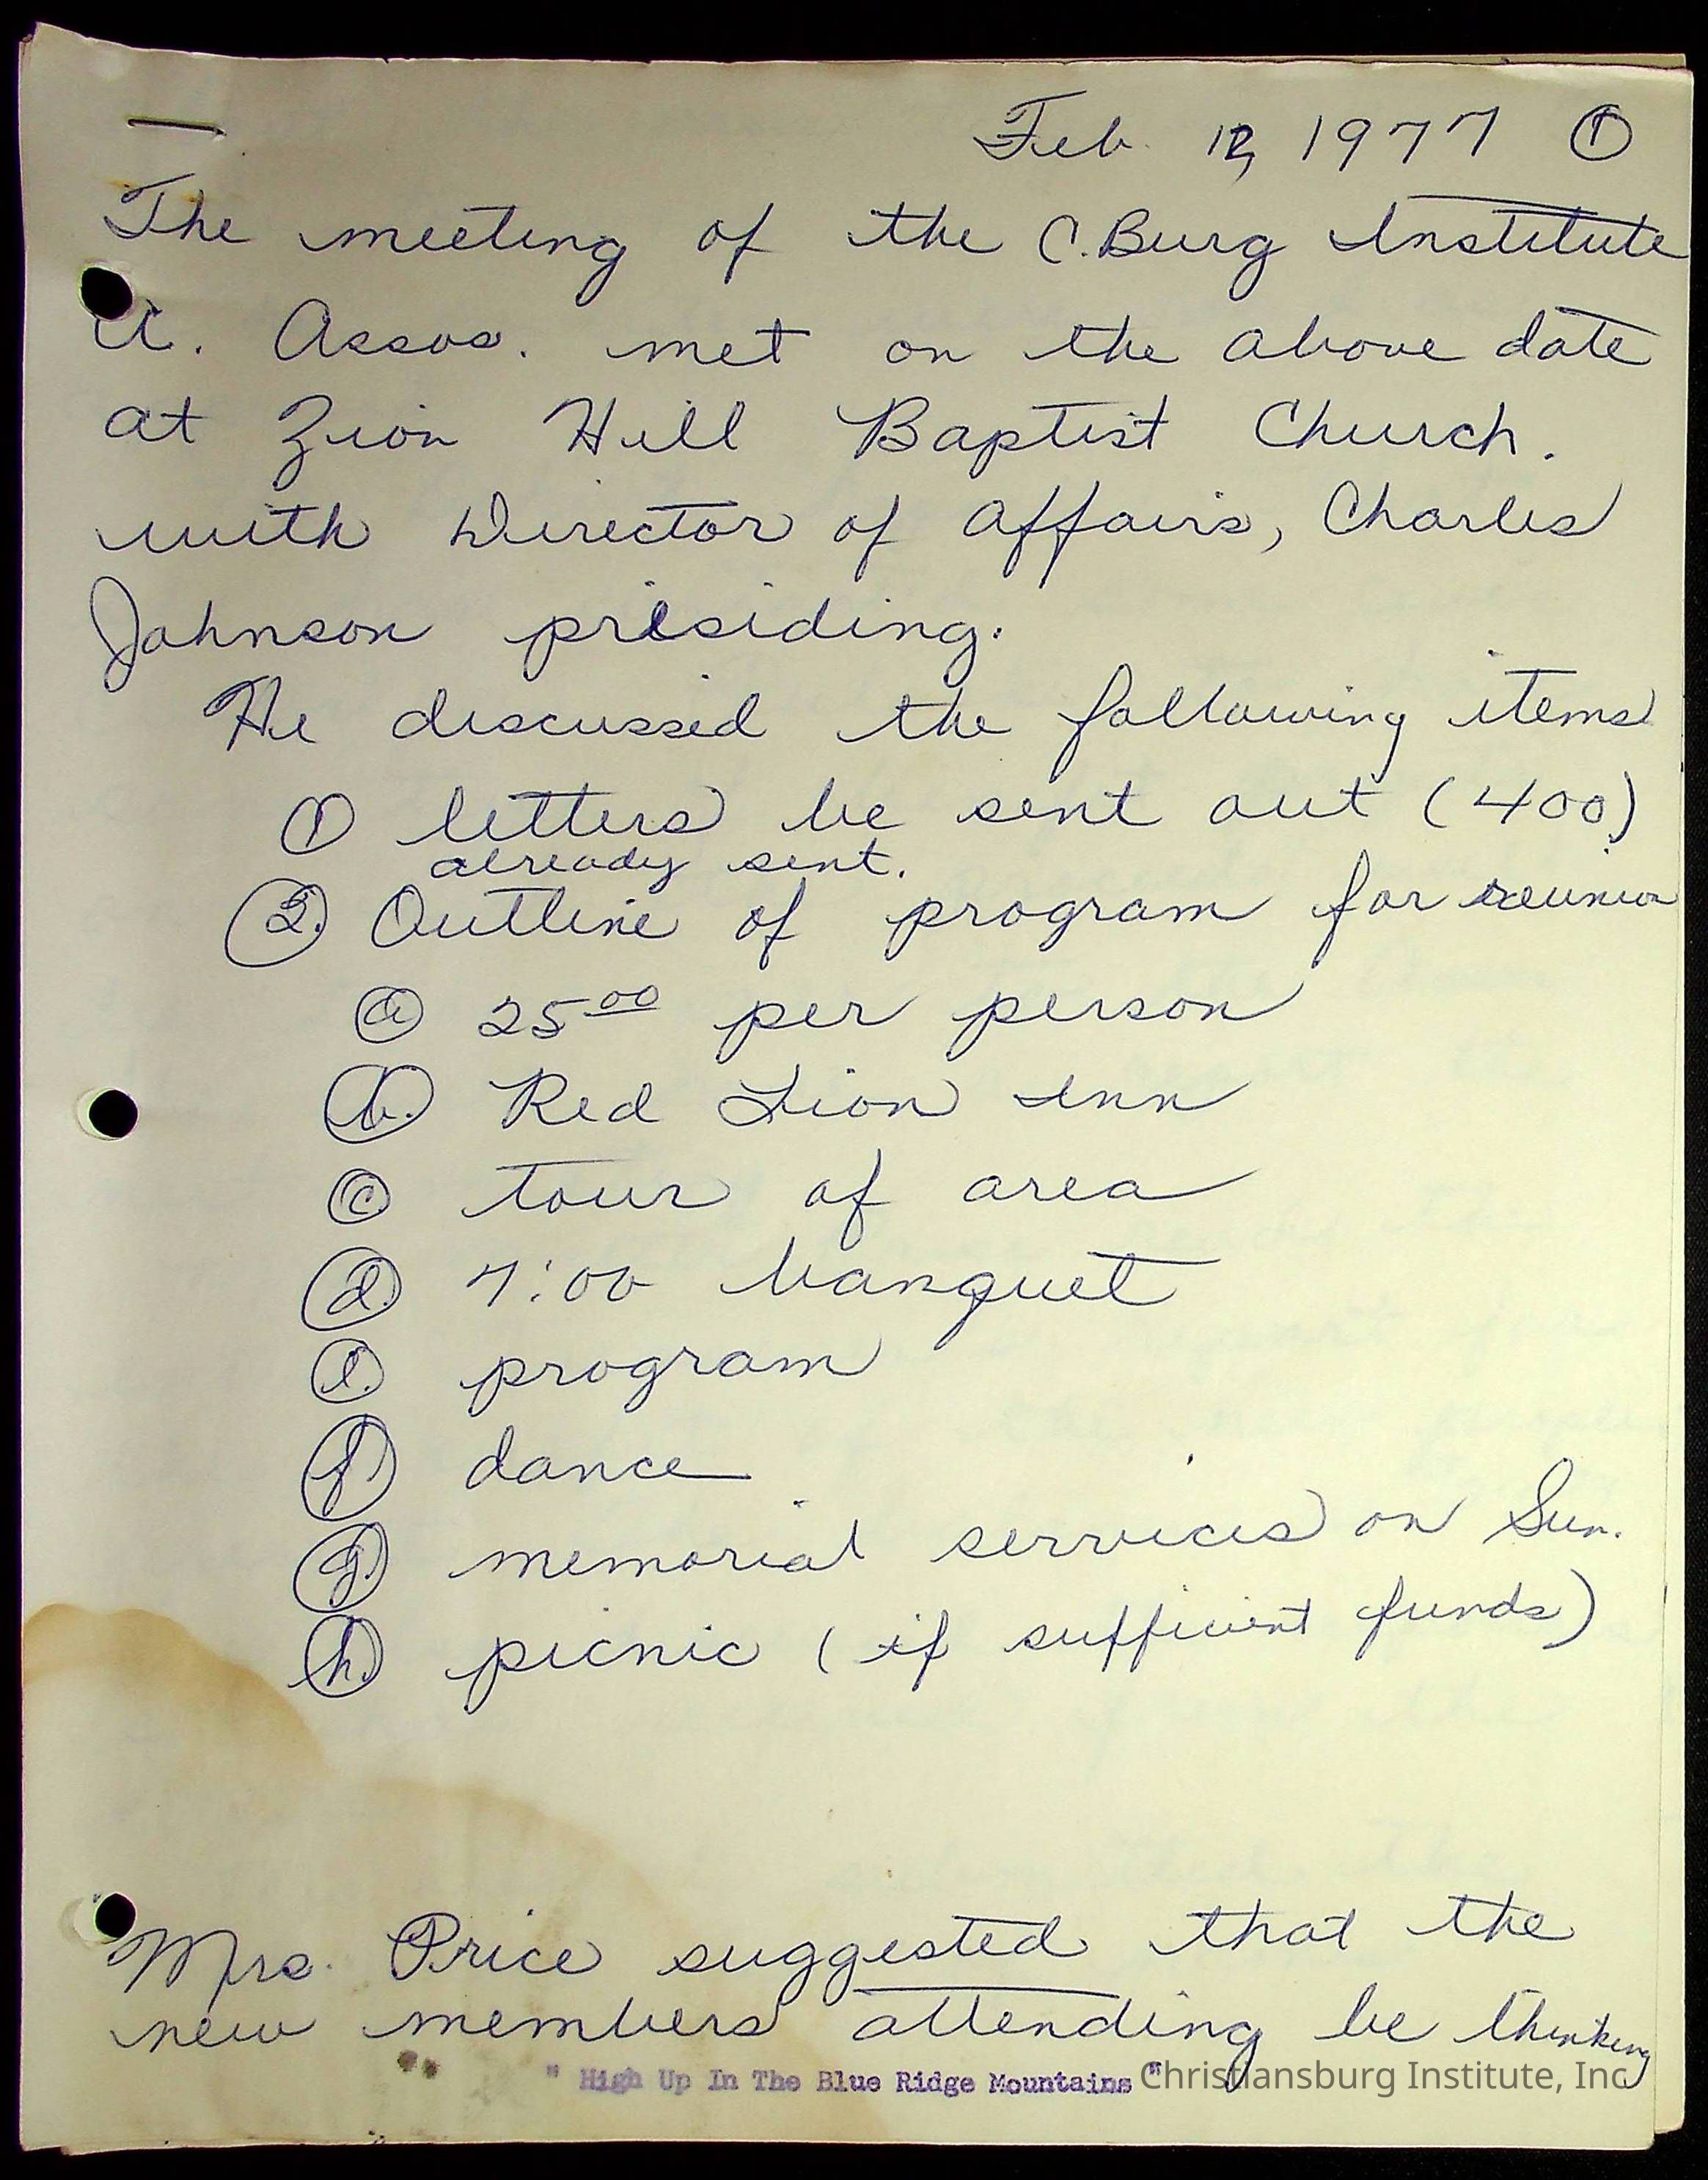 Feb. 12, 1977 ①
The meeting of the C.Burg Institute
A. Assos. met on the above date
at Zion Hill Baptist Church.
with Director of Affairs, Charles
Johnson presiding.
He discussed the following items
① letters be sent out (400)
already sent.
②. Outline of program for reunion
ⓐ 25⁰⁰ per person
ⓑ. Red Lion Inn
ⓒ. tour of area
ⓓ. 7:00 banquet
ⓔ. program
ⓕ. dance
ⓖ. memorial services on Sun.
ⓗ. picnic (if sufficient funds)
Mrs. Price suggested that the
new members attending be thinking
" High Up In The Blue Ridge Mountains "
Christiansburg Institute, Inc